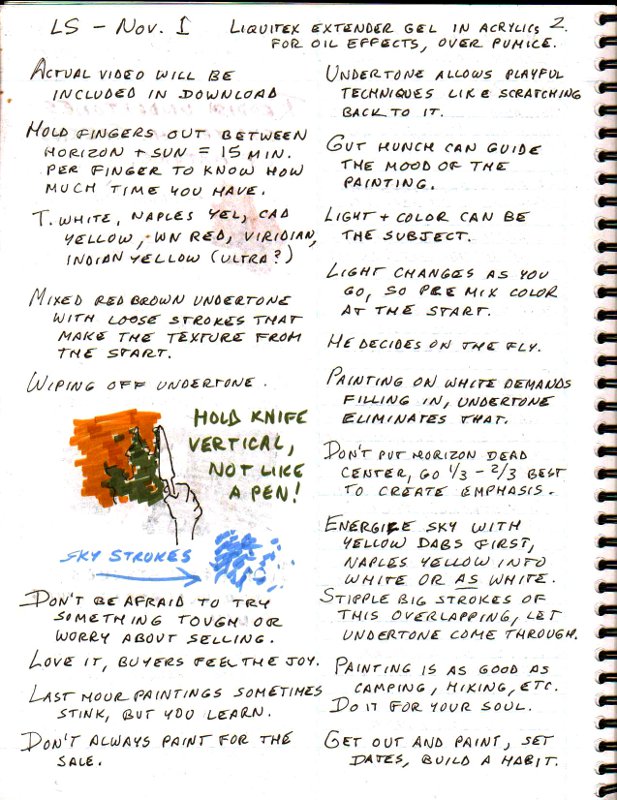 LS - Nov. 1
LIQUITEX EXTENDER GEL IN ACRYLICS 2.
FOR OIL EFFECTS, OVER PUMICE.
ACTUAL VIDEO WILL BE
INCLUDED IN DOWNLOAD
HOLD FINGERS OUT BETWEEN
HORIZON + SUN = 15 MIN.
PER FINGER TO KNOW HOW
MUCH TIME YOU HAVE.
T. WHITE, NAPLES YEL, CAD
YELLOW, WN RED, VIRIDIAN,
INDIAN YELLOW (ULTRA?)
MIXED RED BROWN UNDERTONE
WITH LOOSE STROKES THAT
MAKE THE TEXTURE FROM
THE START.
WIPING OFF UNDERTONE.
HOLD KNIFE
VERTICAL,
NOT LIKE
A PEN!
SKY STROKES
DON'T BE AFRAID TO TRY
SOMETHING TOUGH OR
WORRY ABOUT SELLING.
LOVE IT, BUYERS FEEL THE JOY.
LAST HOUR PAINTINGS SOMETIMES
STINK, BUT YOU LEARN.
DON'T ALWAYS PAINT FOR THE
SALE.
UNDERTONE ALLOWS PLAYFUL
TECHNIQUES LIKE SCRATCHING
BACK TO IT.
GUT HUNCH CAN GUIDE
THE MOOD OF THE
PAINTING.
LIGHT + COLOR CAN BE
THE SUBJECT.
LIGHT CHANGES AS YOU
GO, SO PRE MIX COLOR
AT THE START.
HE DECIDES ON THE FLY.
PAINTING ON WHITE DEMANDS
FILLING IN, UNDERTONE
ELIMINATES THAT.
DON'T PUT HORIZON DEAD
CENTER, GO 1/3 - 2/3 BEST
TO CREATE EMPHASIS.
ENERGIZE SKY WITH
YELLOW DABS FIRST,
NAPLES YELLOW INTO
WHITE OR AS WHITE.
STIPPLE BIG STROKES OF
THIS OVERLAPPING, LET
UNDERTONE COME THROUGH.
PAINTING IS AS GOOD AS
CAMPING, HIKING, ETC.
DO IT FOR YOUR SOUL.
GET OUT AND PAINT, SET
DATES, BUILD A HABIT.